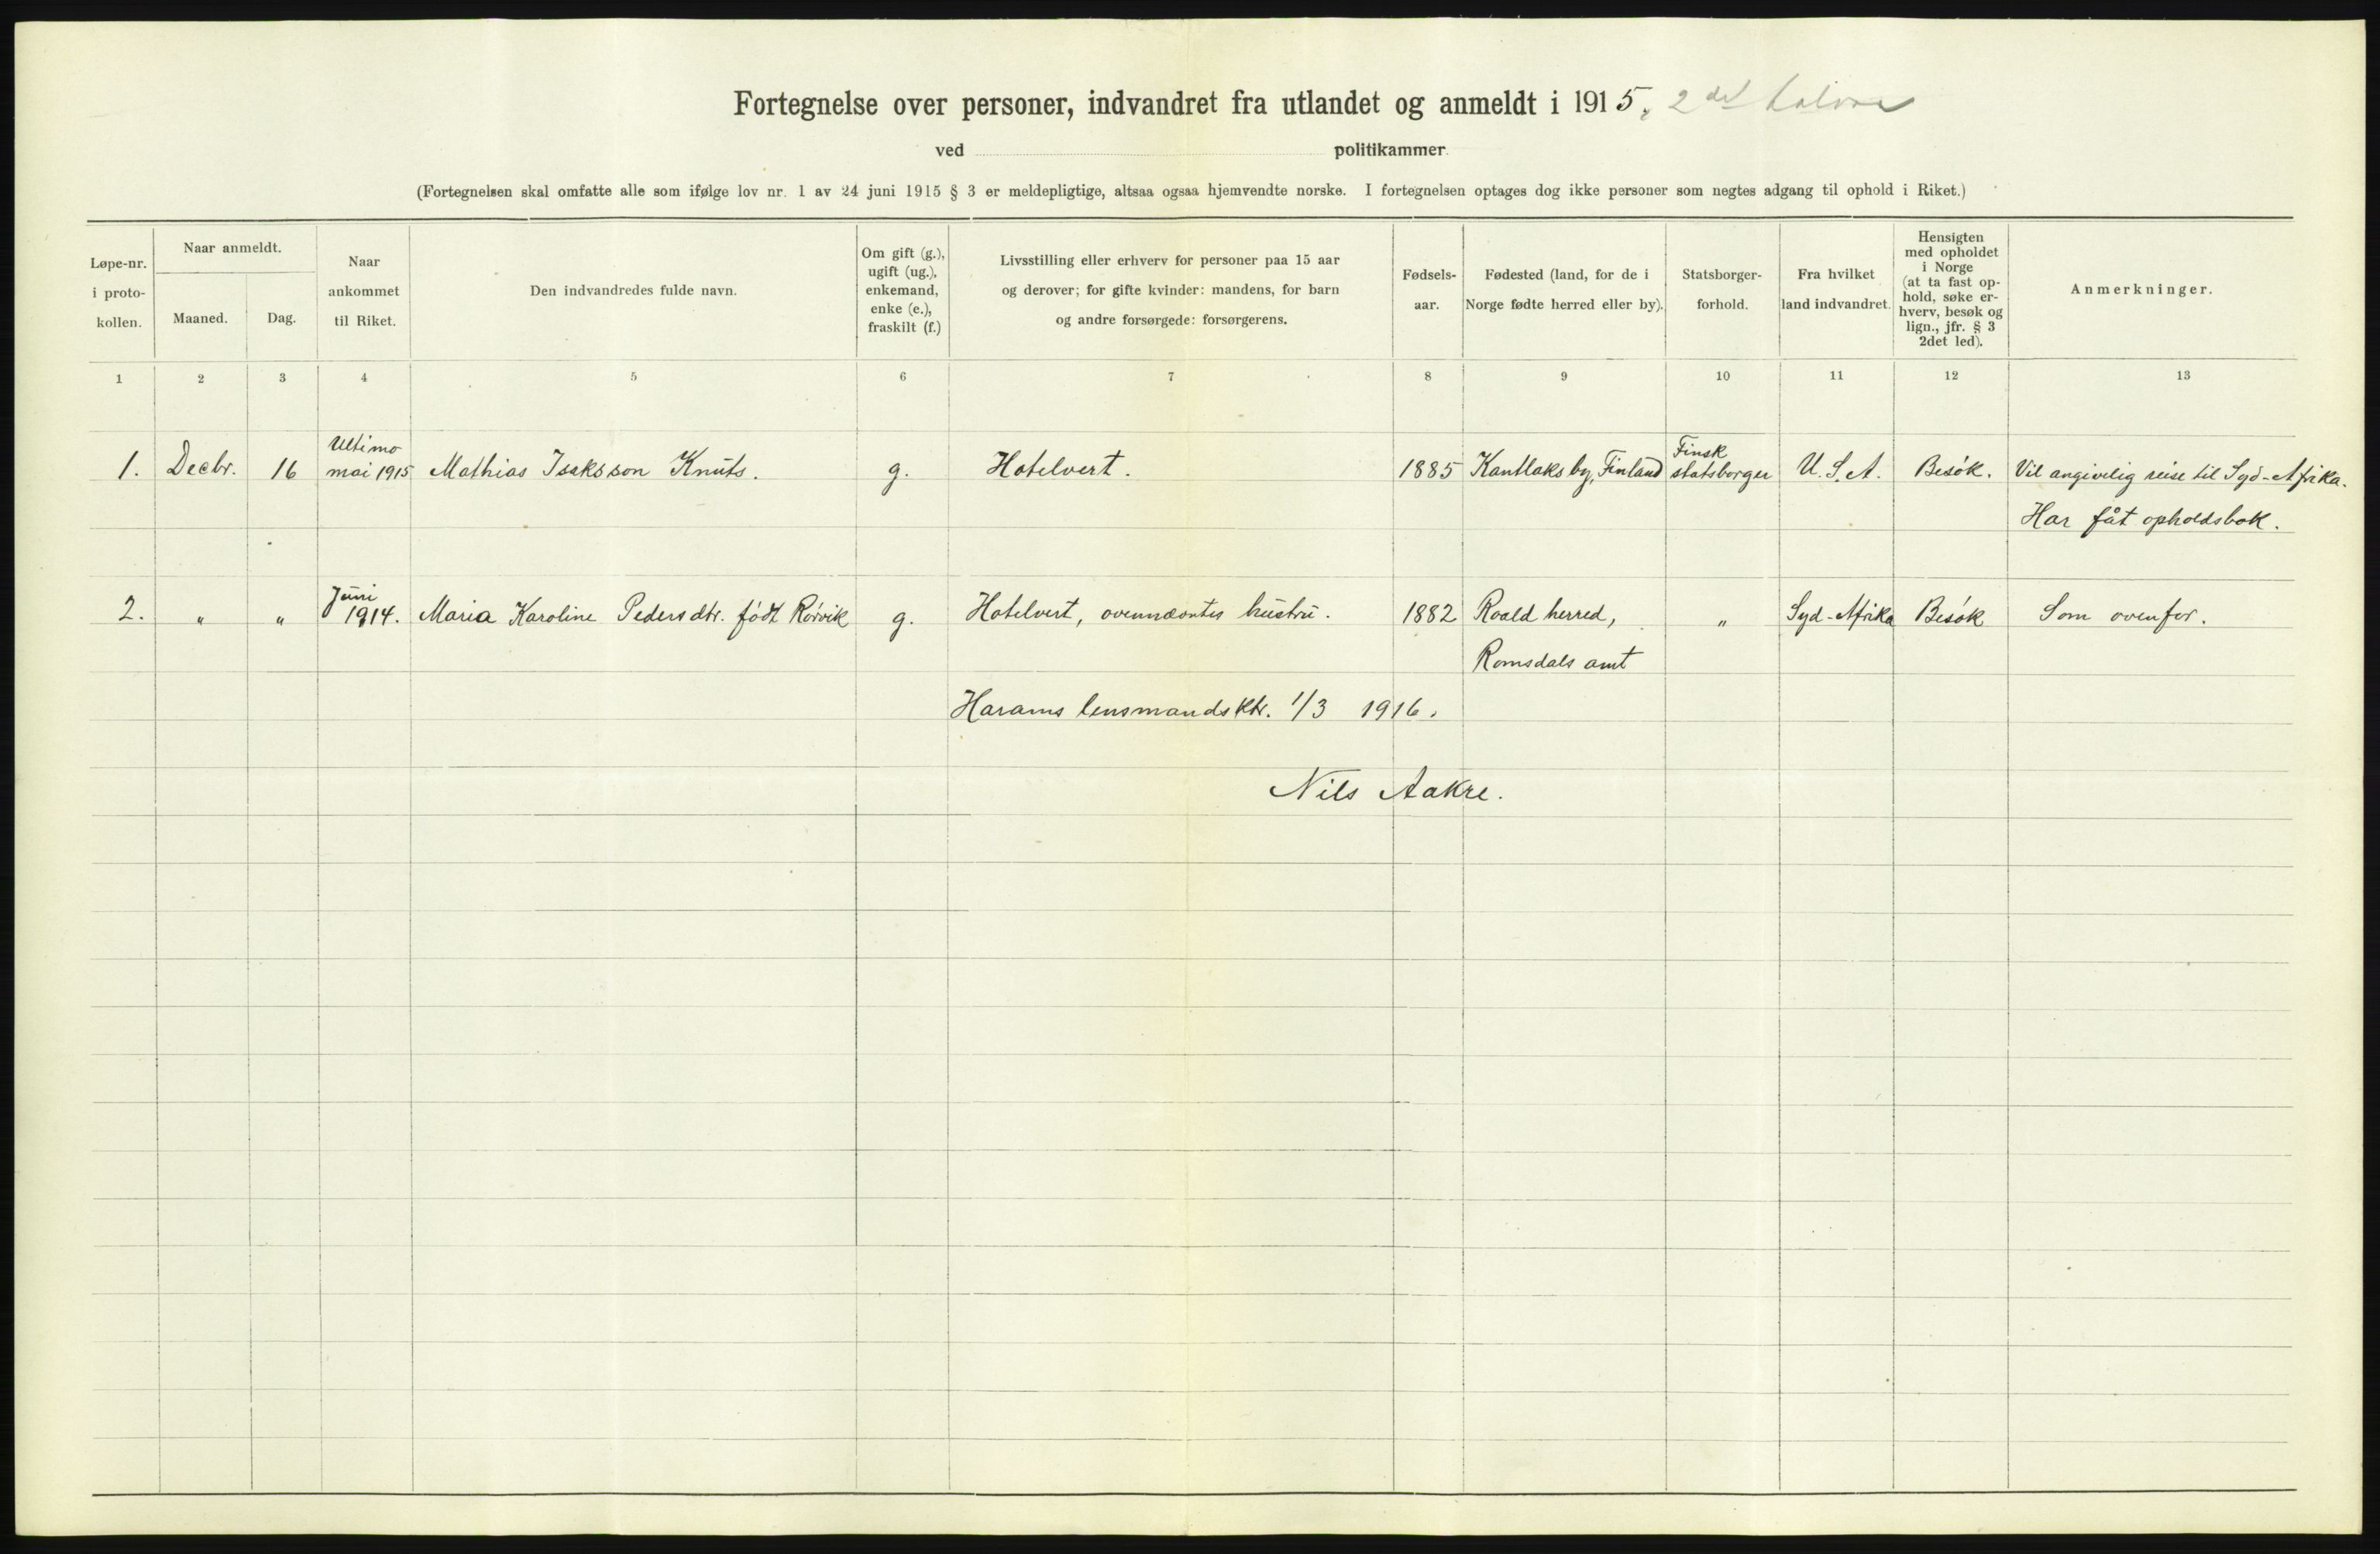 Fortegnelse over personer, indvandret fra utlandet og anmeldt i 1915, 2det halvaar
ved politikammer
(Fortegnelsen skal omfatte alle som ifølge lov nr. 1 av 24 juni 1915 § 3 er meldepligtige, altsaa ogsaa hjemvendte norske. I fortegnelsen optages dog ikke personer som negtes adgang til ophold i Riket.)
Løpe-nr. i proto-kollen.
Naar anmeldt.
Maaned.
Dag.
Naar ankommet til Riket.
Den indvandredes fulde navn.
Om gift (g.), ugift (ug.), enkemand, enke (e.), fraskilt (f.)
Livsstilling eller erhverv for personer paa 15 aar
og derover; for gifte kvinder: mandens, for barn
og andre forsørgede: forsørgerens.
Fødsels-aar.
Fødested (land, for de i Norge fødte herred eller by).
Statsborger-forhold.
Fra hvilket land indvandret.
Hensigten med opholdet i Norge (at ta fast op-hold, søke er-hverv, besøk og lign., jfr. § 3 2det led).
Anmerkninger.
1 2 3 4 5 6 7 8 9 10 11 12 13
1. Decbr. 16 Ultimo mai 1915 Mathias Isaksson Knuts. g. Hotelvert. 1885 Kantlaks by, Finland Finsk statsborger U.S.A. Besøk. Vil angivelig reise til Syd-Afrika.
Har fåt opholdsbok.
2. " " Juni 1914. Maria Karoline Pedersdtr. født Rørvik g. Hotelvert, ovennævntes hustru. 1882 Roald herred, " Syd-Afrika Besøk Som ovenfor.
Romsdals amt
Harams lensmandsktr. 1/3 1916.
Nils Aakre.